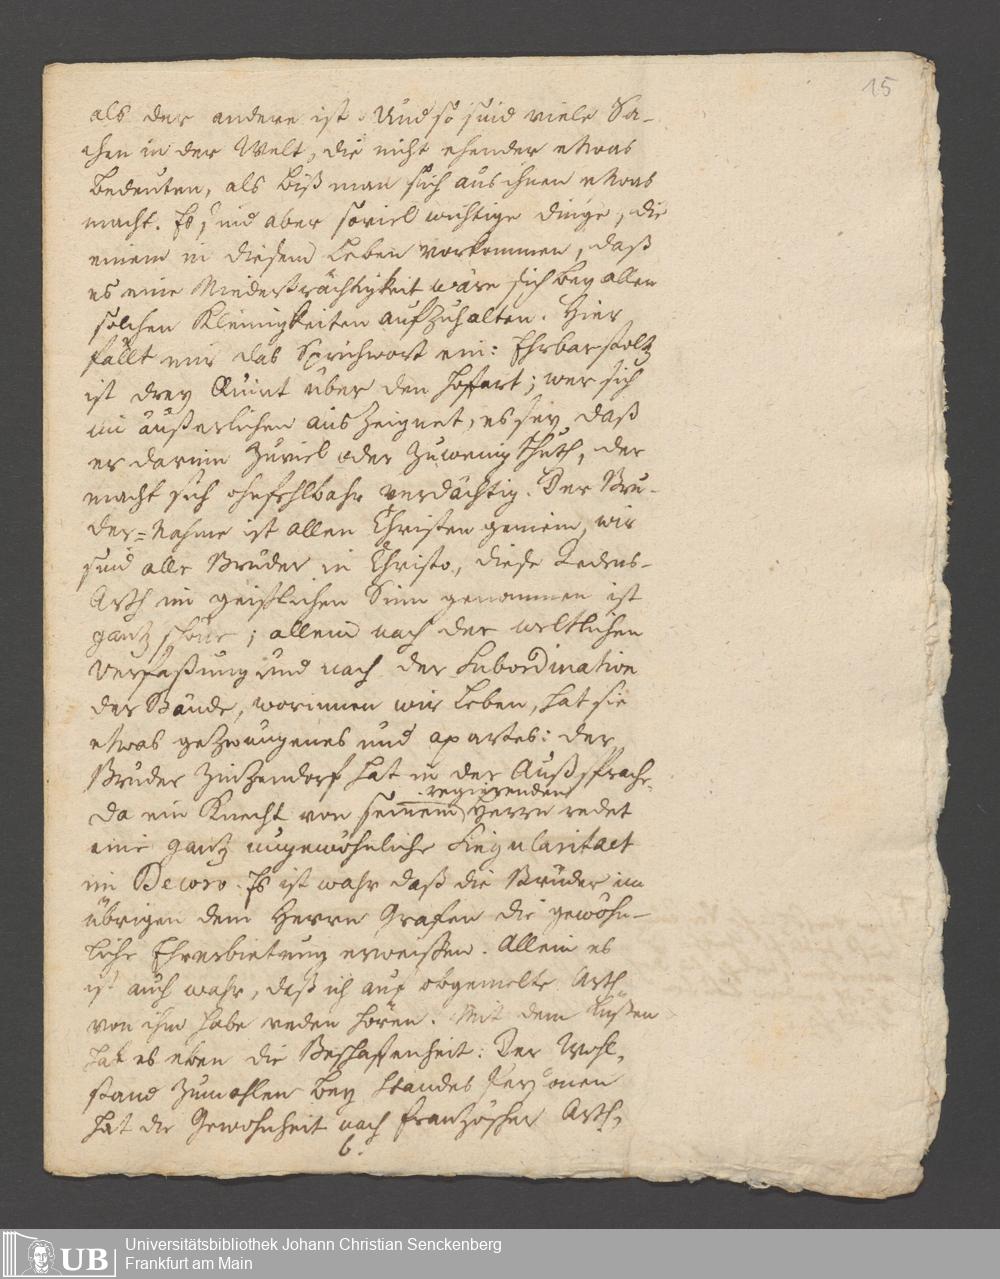 15
als der andere ist. Und so sind viele Sa-
chen in der Welt, die nicht ehender etwas
bedeuten, als biß man sich aus ihnen etwas
macht. Es sind aber soviel wichtige dinge, die
einem in diesem Leben vorkommen, daß
es eine Niederträchtigkeit wäre sich bey allen
solchen Kleinigkeiten aufzuhalten. Hier
fällt mir das Sprichwort ein: Ehrbarstoltz
ist drey Quint über den Hoffart; wer sich
im äußerlichen auszeignet, es sey daß
er darinn zuviel oder zuwenig thuth, der
macht sich ohnfehlbahr verdächtig. Der Bru-
der=Nahme ist allen Christen gemein, wir
sind alle Brüder in Christo, diese Redens-
Arth im geistlichen Sinn genommen ist
gantz schön; allein nach der weltlichen
Verfaßung und nach der Subordination
der Stände, worinnen wir leben, hat sie
etwas gezwungenes und apartes: der
Bruder Zinzendorf hat in der Außsprache,
regierenden
da ein Knecht von seinem Herrn redet
eine gantz ungewöhnliche Singularitaet
im Decoro. Es ist wahr daß die Brüder im
übrigen dem Herrn Grafen die gewöhn-
liche Ehrerbietung erweißen. Allein es
ist auch wahr, daß ich auf obgemelte Arth
von ihm habe reden hören. Mit dem Küßen
hat es eben die Beschaffenheit: Der Wohl-
stand zumahlen bey Standes Personen
hat die Gewohnheit nach französcher Arth,
6.
UB
Universitätsbibliothek Johann Christian Senckenberg
Frankfurt am Main